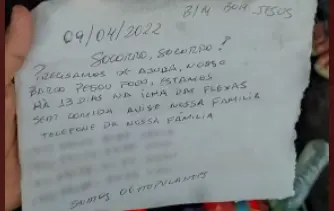 B/M BOM JESUS
09/04/2022
SOCORRO, SOCORRO!
PRECISAMOS DE AJUDA, NOSSO
BARCO PEGOU FOGO, ESTAMOS
HÁ 13 DIAS NA ILHA DAS FLEXAS
SEM COMIDA AVISE NOSSA FAMILIA
TELEFONE DA NOSSA FAMÍLIA
SOMOS 6 TRIPULANTES